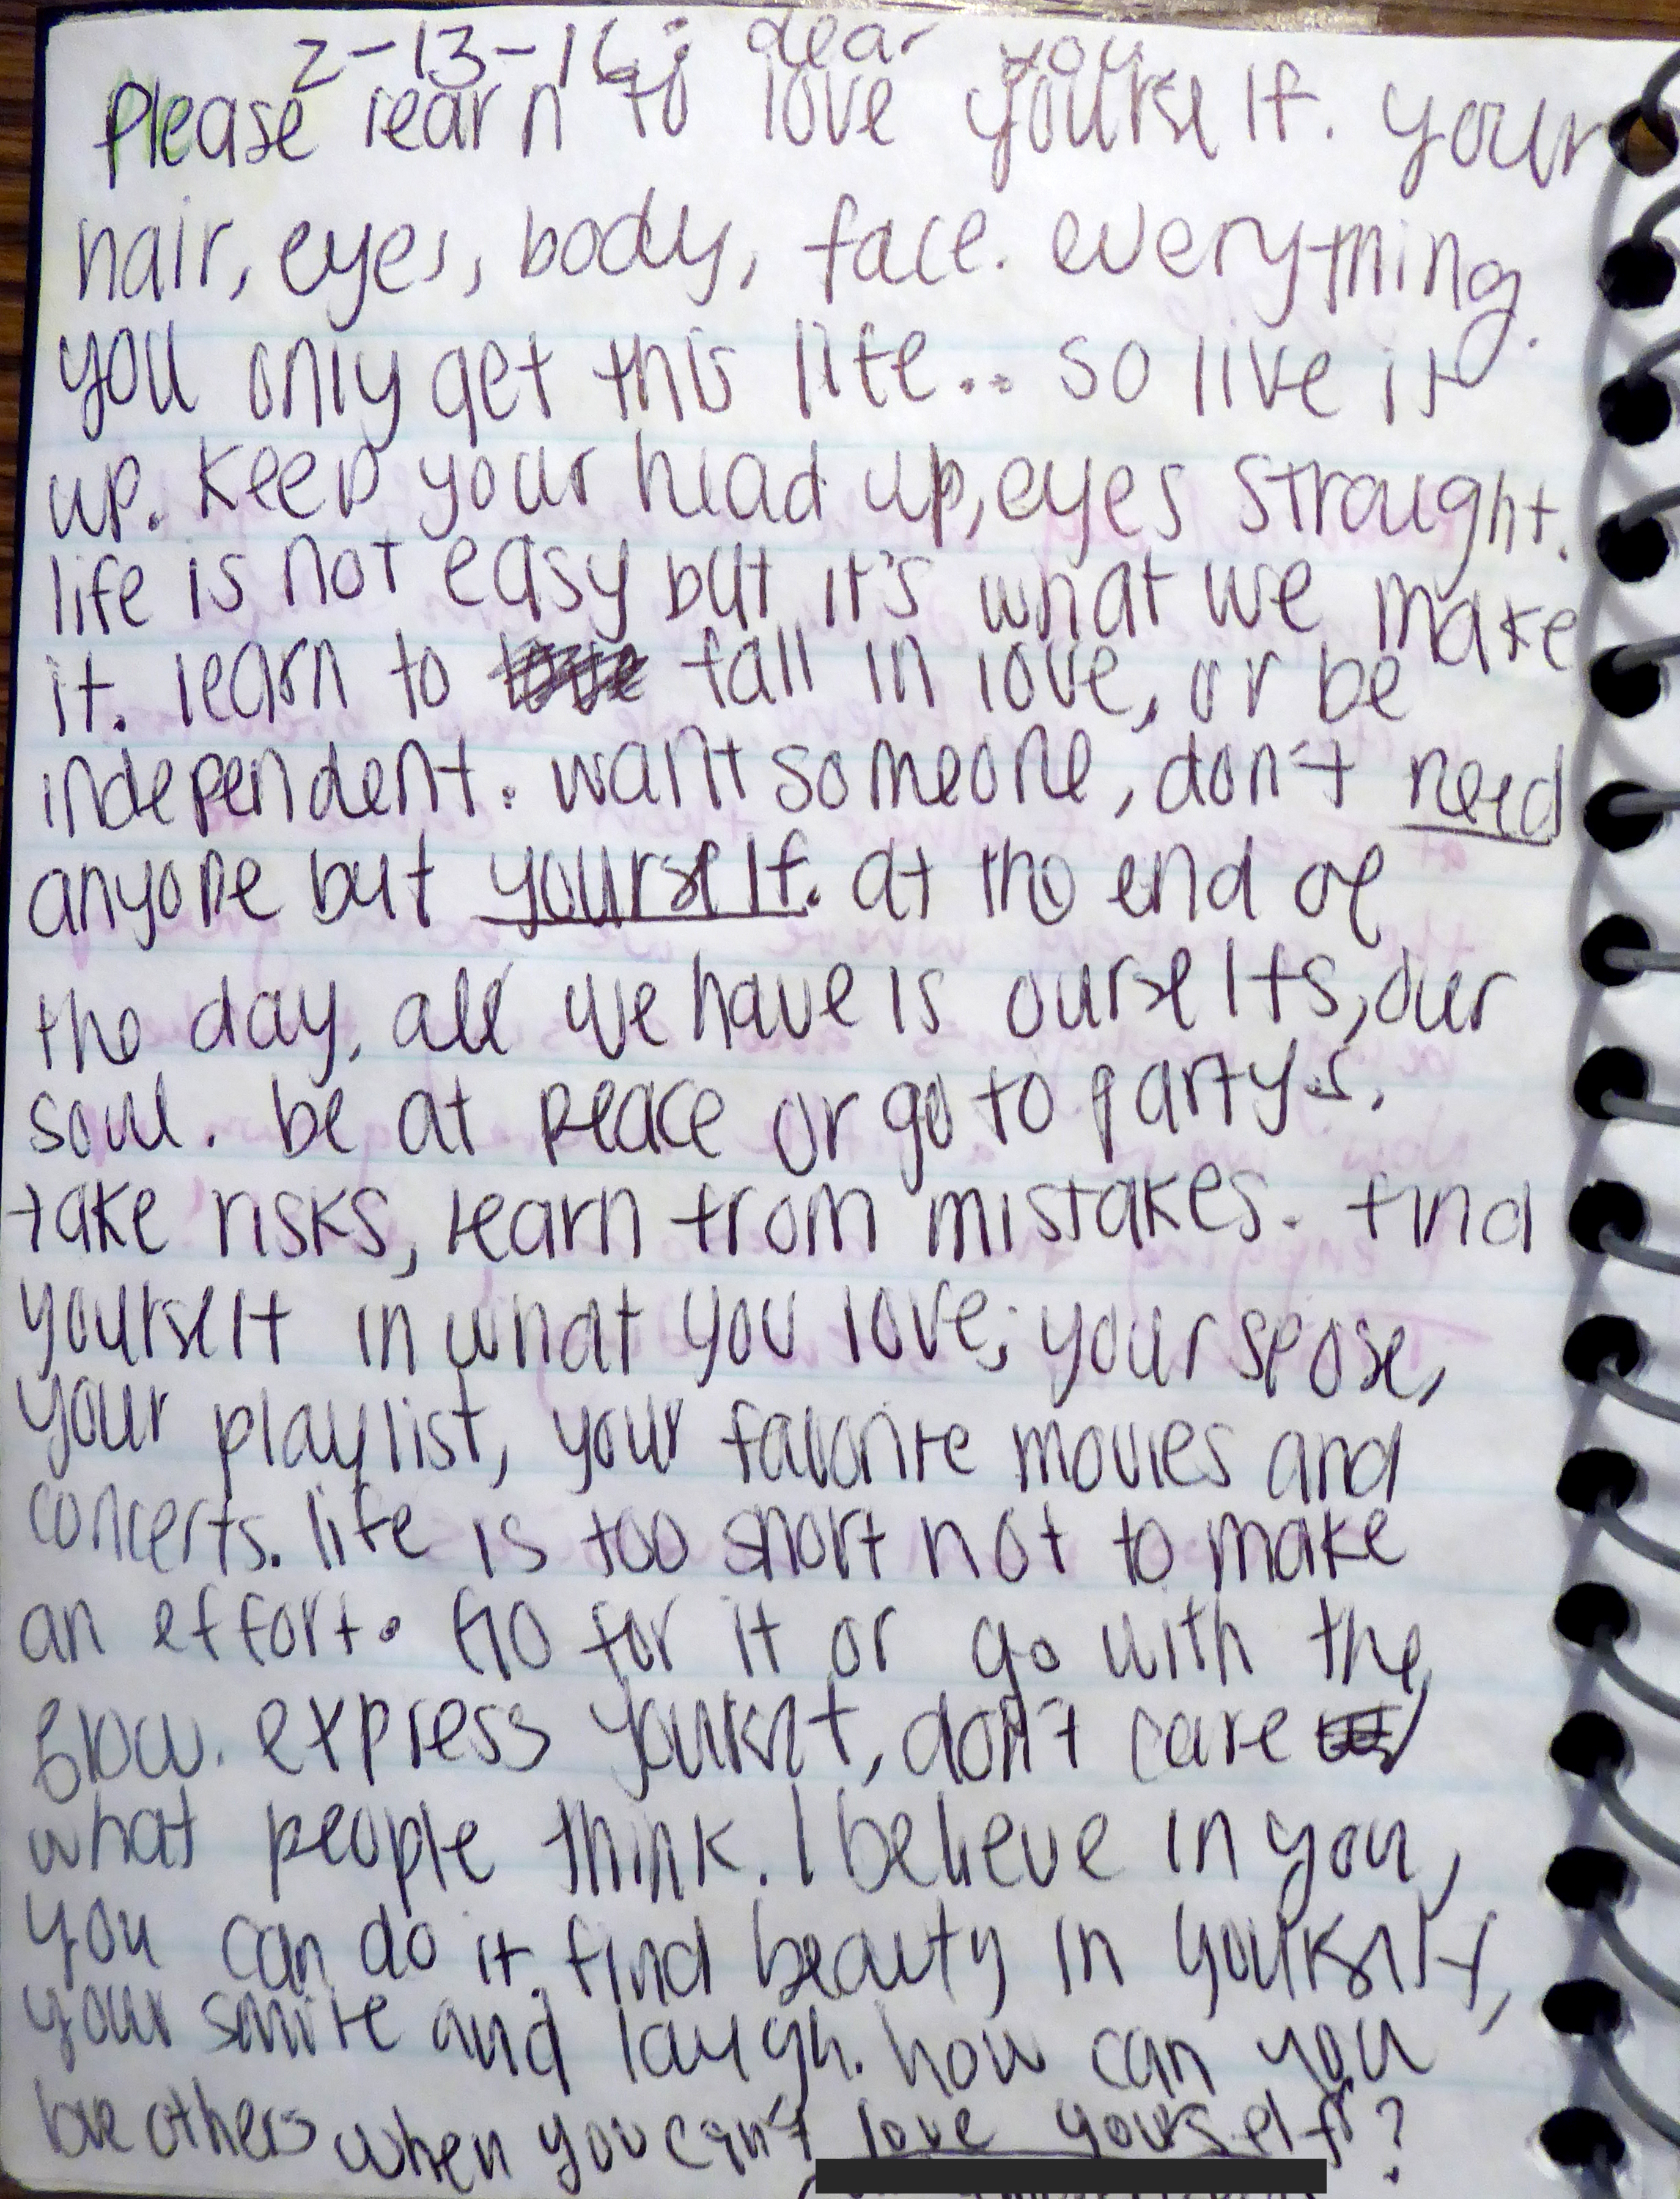 2-13-16: dear you
Please learn to love yourself. your
hair, eyes, body, face. everything.
you only get this life.. so live it
up. Keep your head up, eyes straight.
life is not easy but it's what we make
it. learn to love fall in love, or be
independent. want someone, don't need
anyone but yourself. at the end of
the day, all we have is ourselfs, our
soul. be at peace or go to partys.
take risks, learn from mistakes. find
yourself in what you love; your spose,
your playlist, your favorite movies and
concerts. life is too short not to make
an effort. Go for it or go with the
flow. express yourself, don't care
what people think. I believe in you,
you can do it. find beauty in yourself,
your smile and laugh. how can you
love others when you can't love yourself?